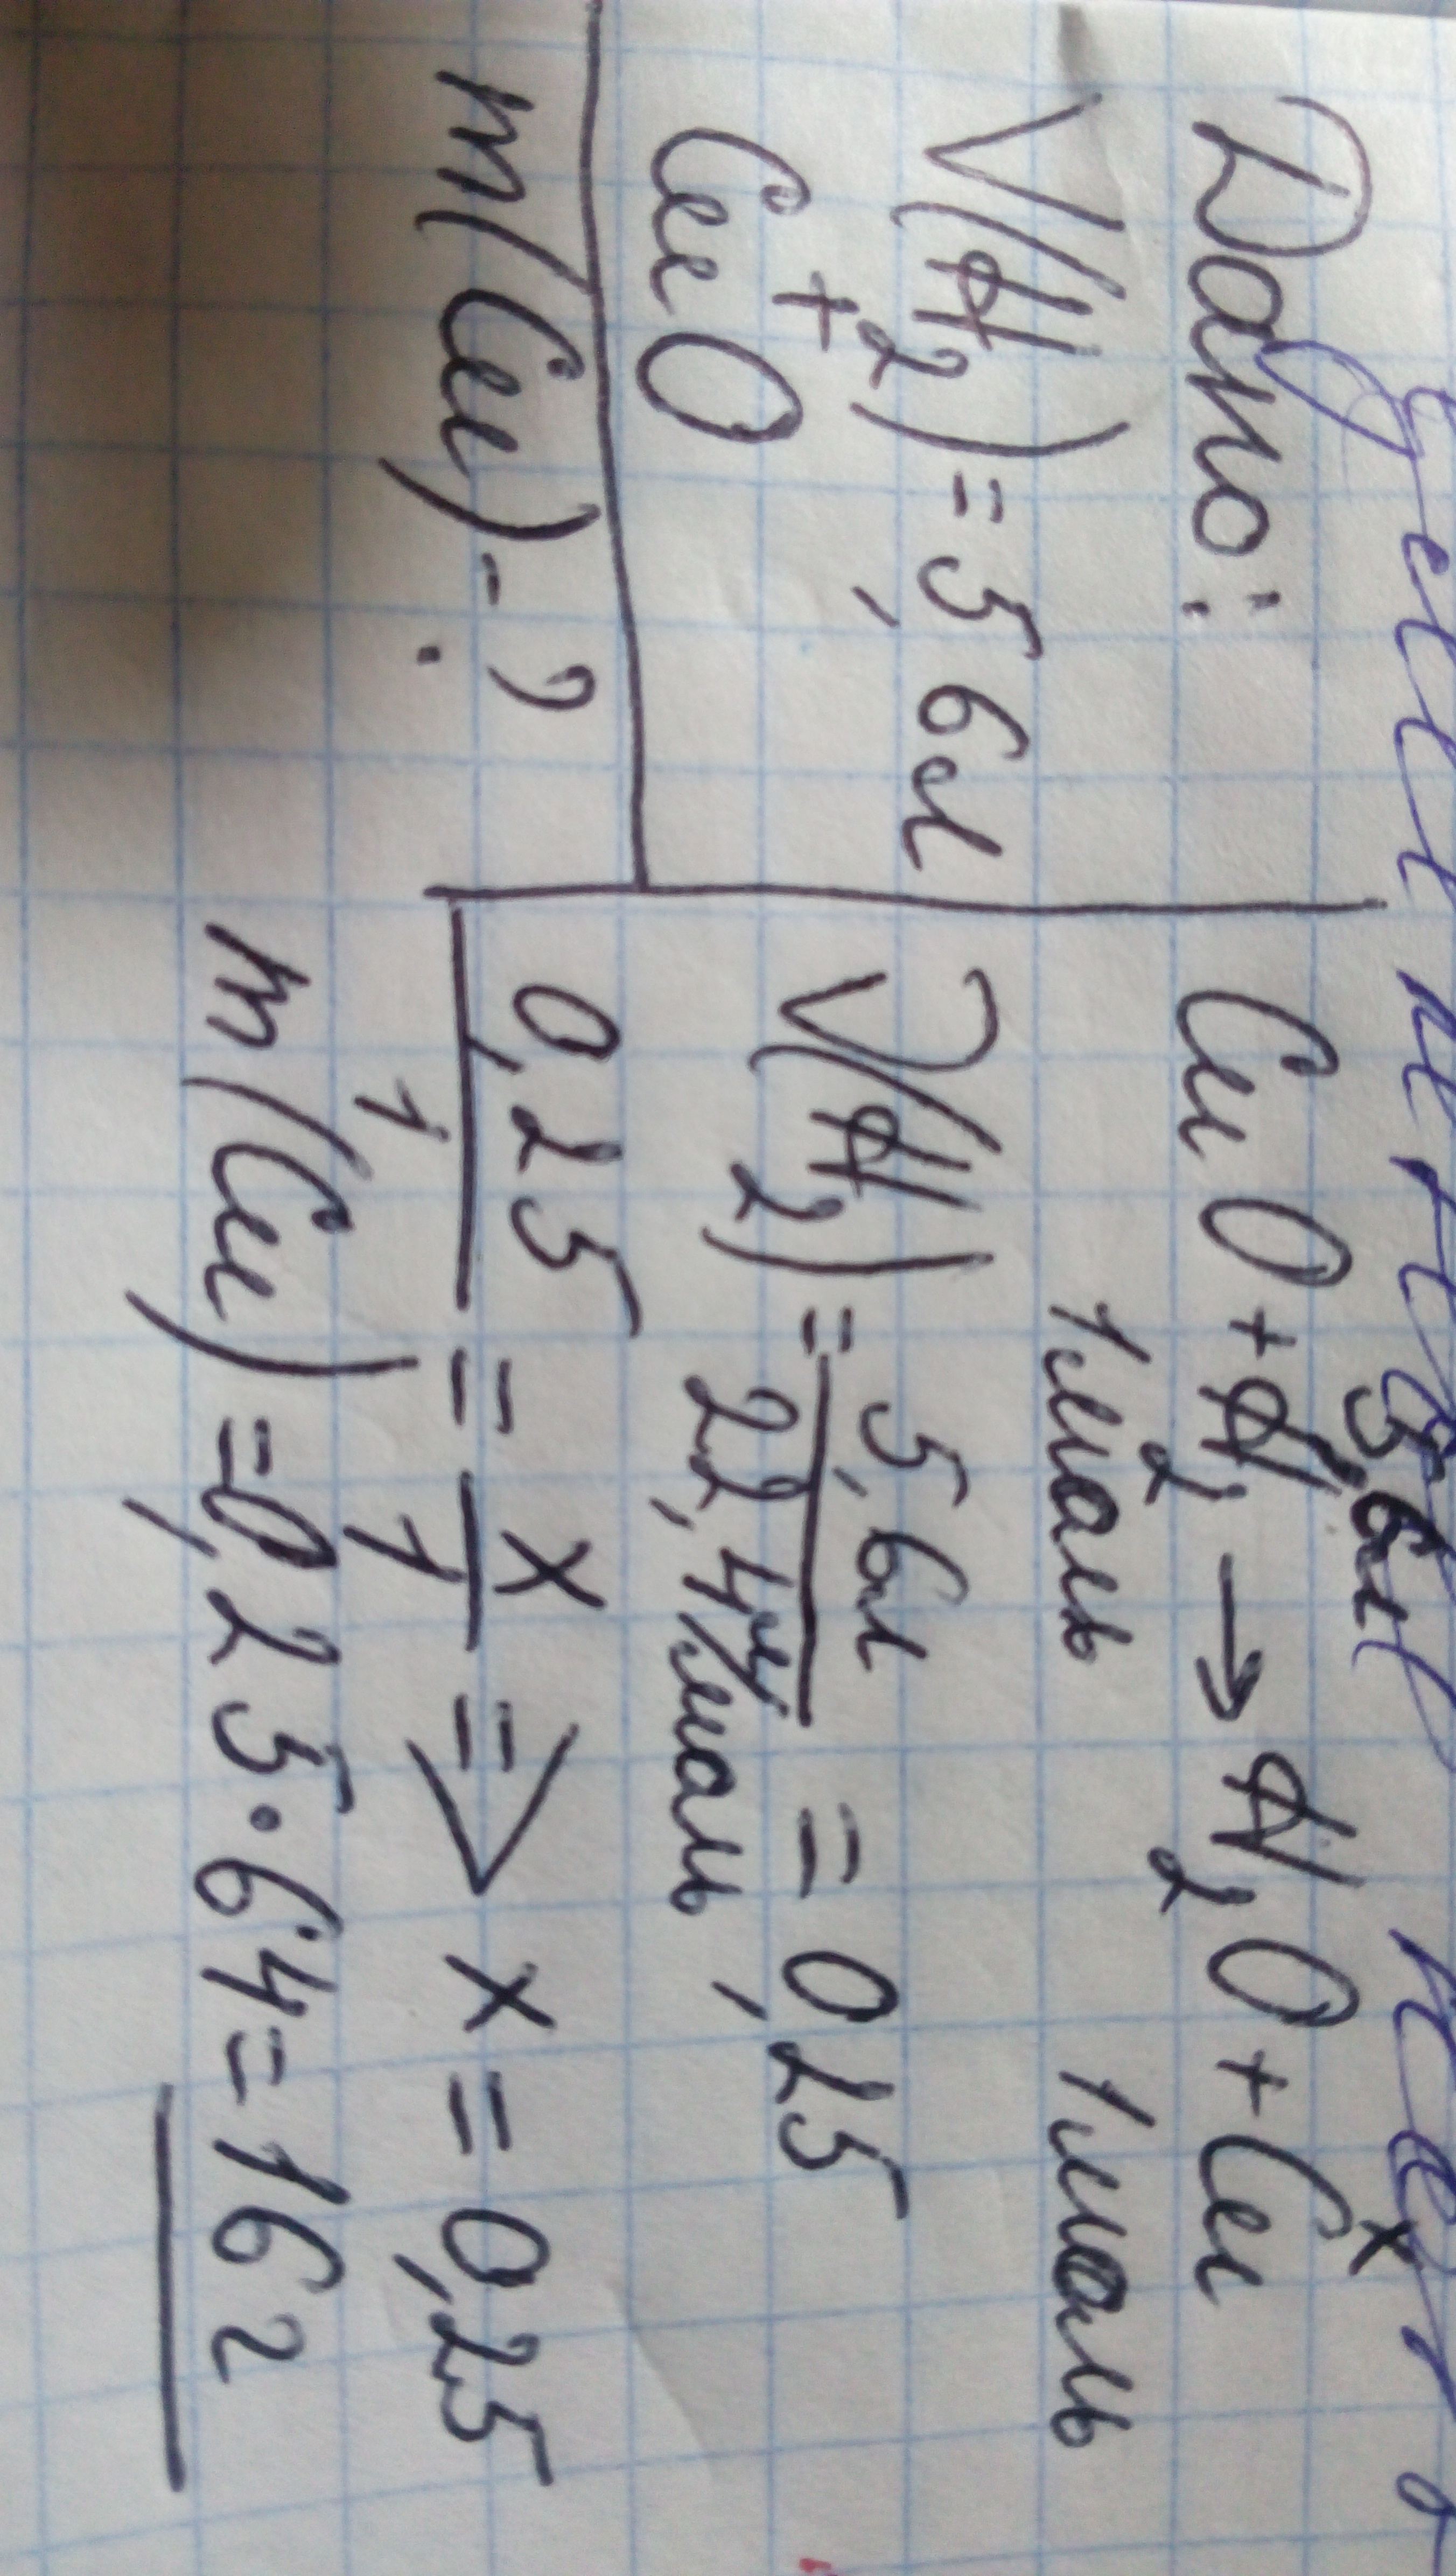 Дано:
V(H2) = 5,6л
+
CuO
m(Cu) - ?
5,6л x
CuO + H2 → H2O + Cu
1моль 1моль
V(H2) = 5,6л / 22,4л/моль = 0,25
0,25 / 1 = x / 1 => x = 0,25
m(Cu) = 0,25 · 64 = 16 г